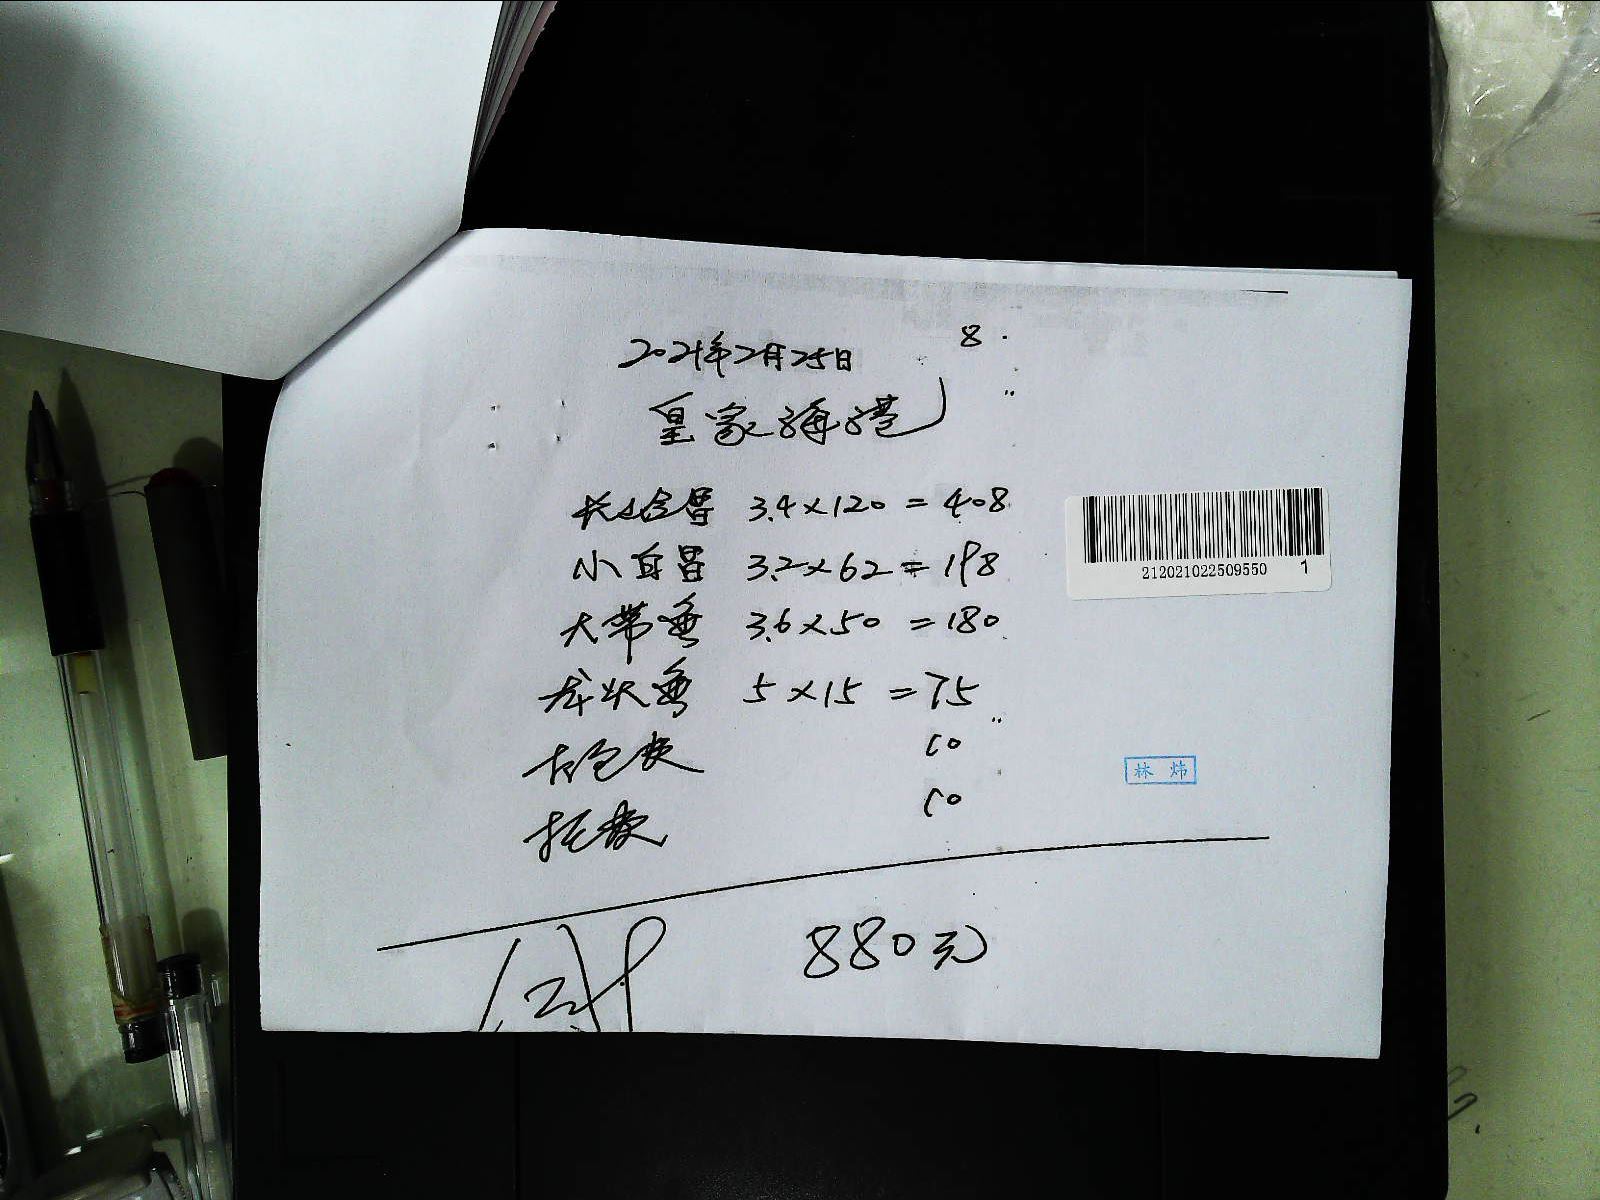 8.
2021年2月25日
皇家海港
3.4×120=408
小白昌 3.2×62=198
大带鱼 3.6×50=180
龙头鱼 5×15=75
10
10
880元
212021022509550 1
林炜